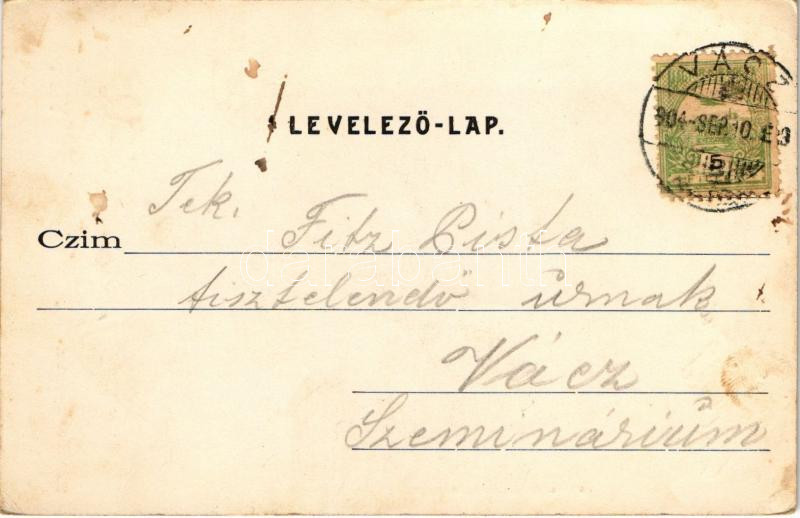 LEVELEZŐ-LAP.
VÁCZ
904-SEP.10.
5
Tek.
Czim Fitz Pista
tisztelendő úrnak
Vácz
Szeminárium
darabanth